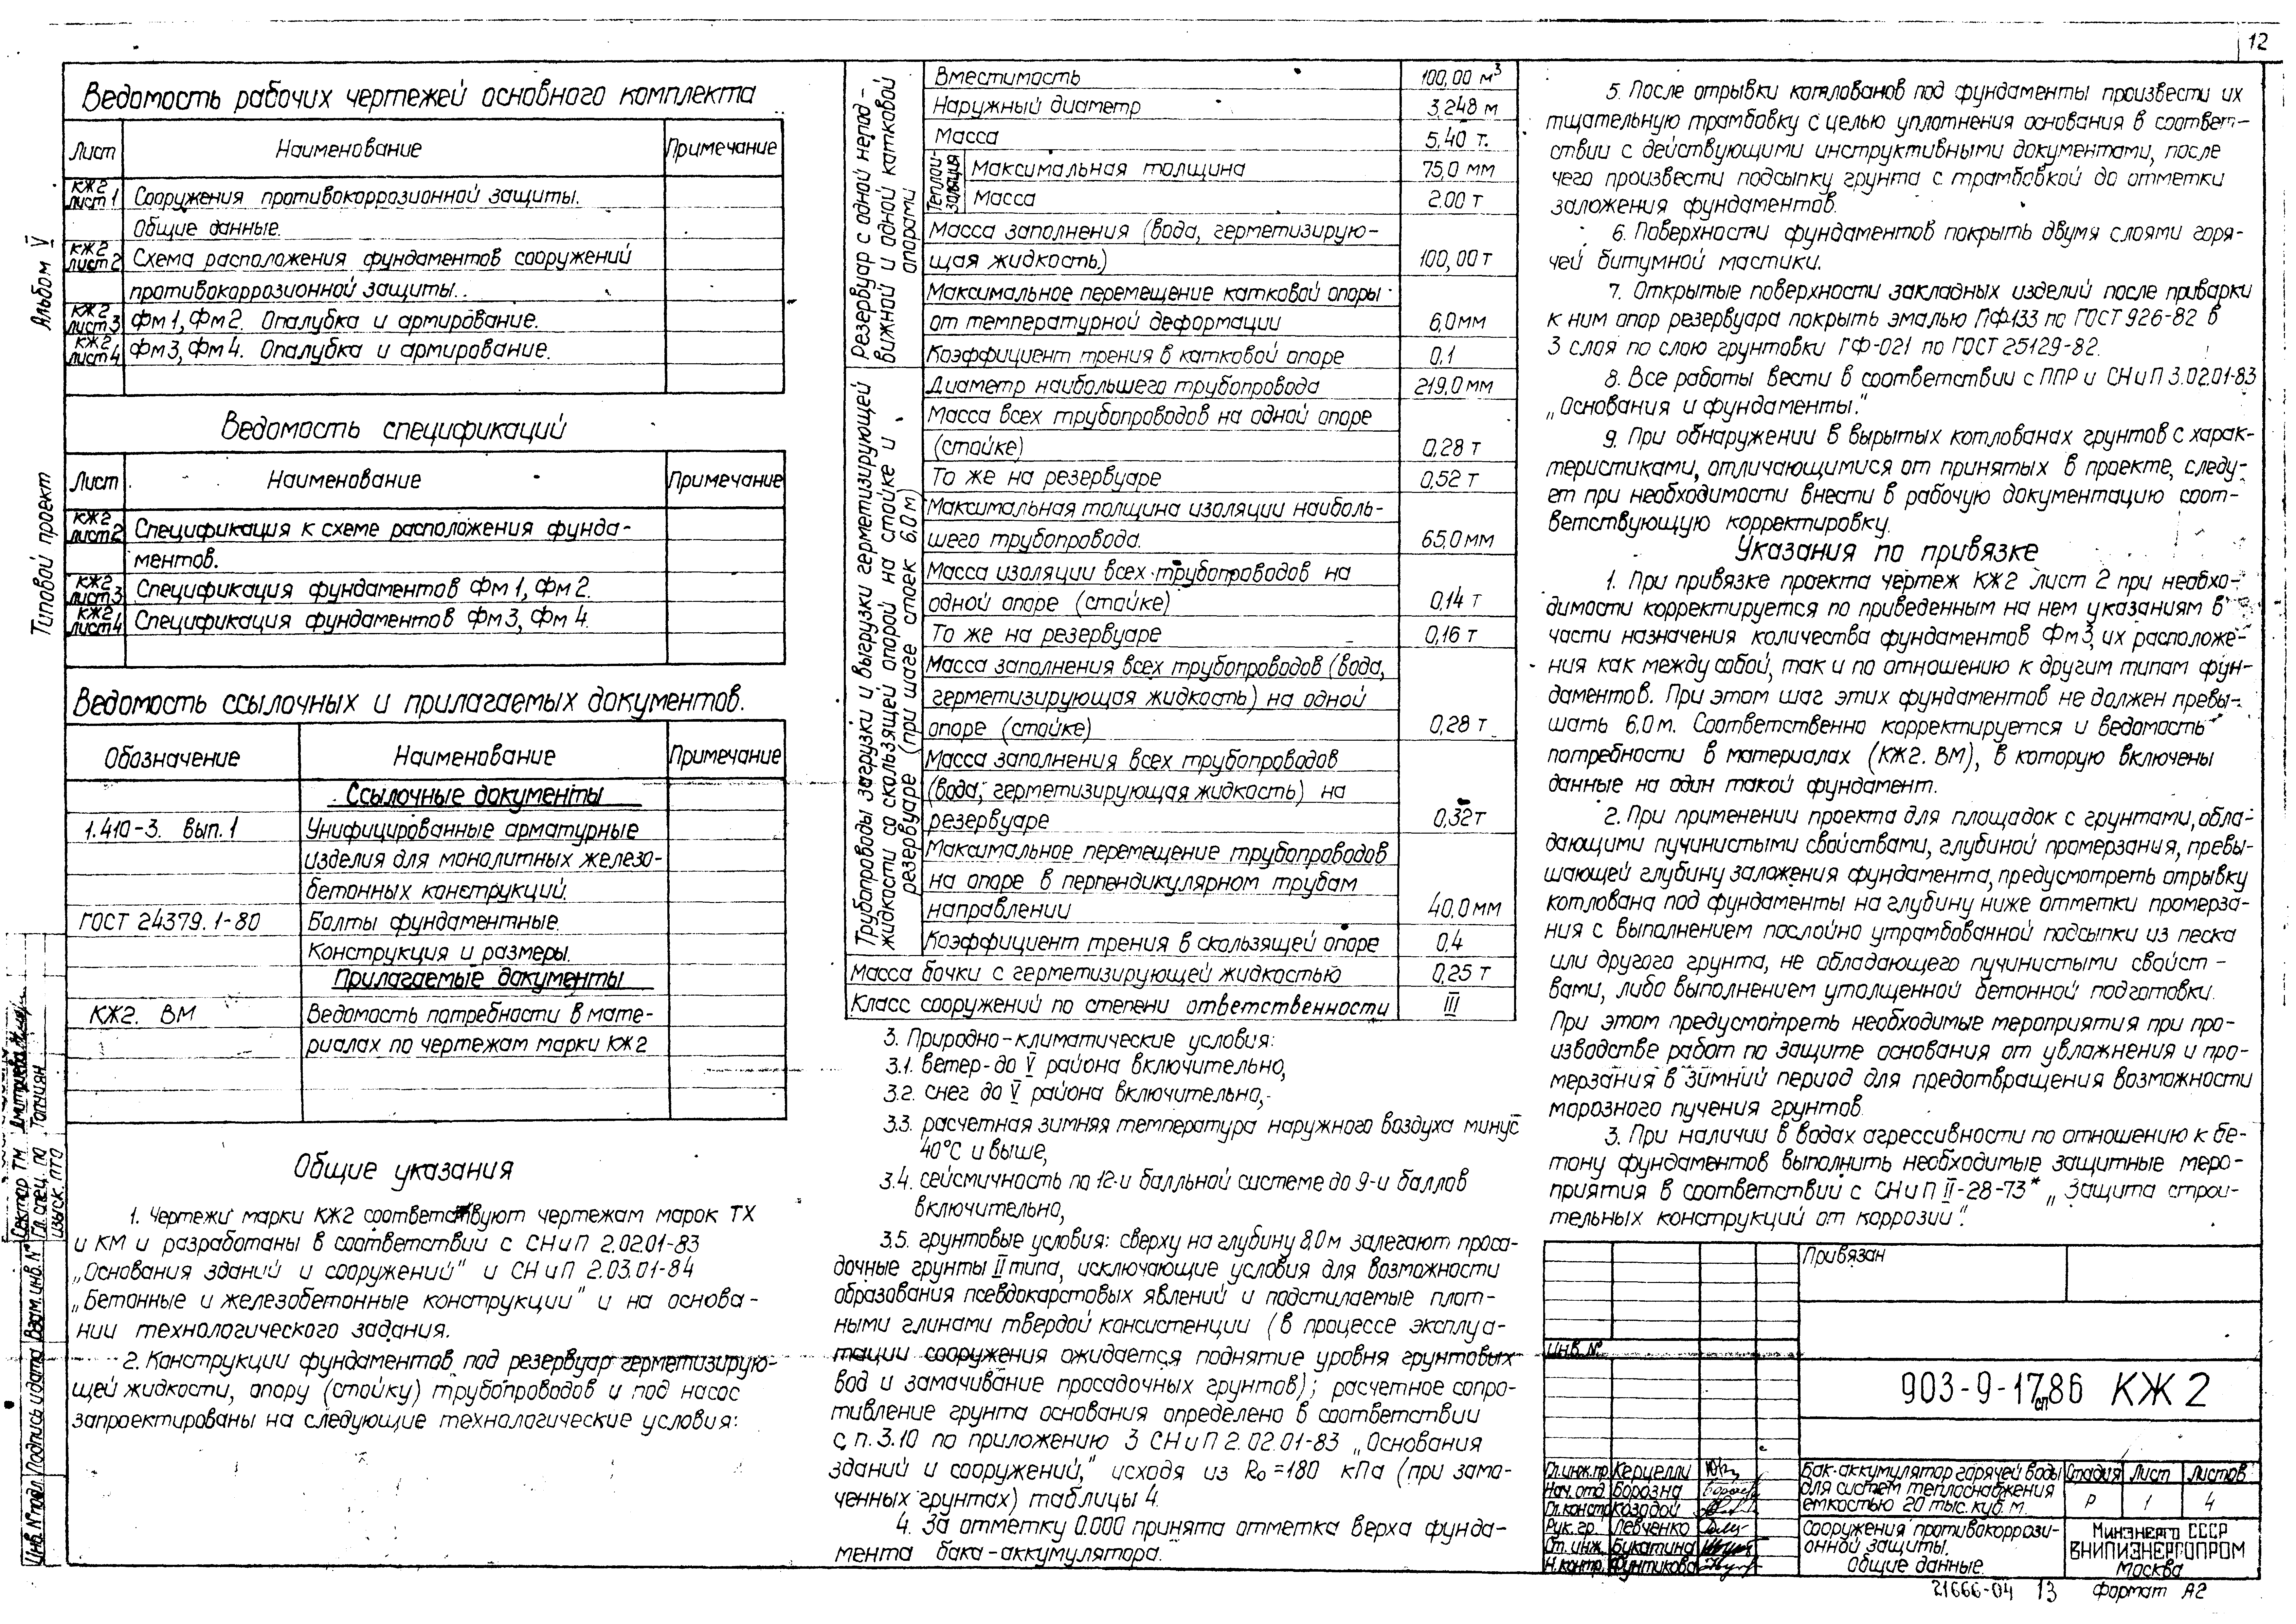 12
Ведомость рабочих чертежей основного комплекта
Лист Наименование Примечание
КЖ2 лист 1 Сооружения противокоррозионной защиты.
Общие данные.
КЖ2 лист 2 Схема расположения фундаментов сооружений
противокоррозионной защиты.
КЖ2 лист 3 Фм1, Фм2. Опалубка и армирование.
КЖ2 лист 4 Фм3, Фм4. Опалубка и армирование.
Ведомость спецификаций
Лист Наименование Примечание
КЖ2 лист 2 Спецификация к схеме расположения фунда-
ментов.
КЖ2 лист 3 Спецификация фундаментов Фм1, Фм2.
КЖ2 лист 4 Спецификация фундаментов Фм3, Фм4.
Ведомость ссылочных и прилагаемых документов.
Обозначение Наименование Примечание
Ссылочные документы
1.410-3. вып.1 Унифицированные арматурные
изделия для монолитных железо-
бетонных конструкций.
ГОСТ 24379.1-80 Болты фундаментные.
Конструкция и размеры.
Прилагаемые документы
КЖ2. ВМ Ведомость потребности в мате-
риалах по чертежам марки КЖ2
Общие указания
1. Чертежи марки КЖ2 соответствуют чертежам марок ТХ
и КМ и разработаны в соответствии с СНиП 2.02.01-83
„Основания зданий и сооружений" и СНиП 2.03.01-84
„Бетонные и железобетонные конструкции" и на основа-
нии технологического задания.
2. Конструкции фундаментов под резервуар герметизирую-
щей жидкости, опору (стойку) трубопроводов и под насос
запроектированы на следующие технологические условия:
Альбом V
Типовой проект
Сектор ТМ Дмитриева
Гл. спец. по Топчиян
изыск. ПТО
Инв. № подл. Подпись и дата Взам. инв. №
Резервуар с одной непод-
вижной и одной катковой
опорами
Вместимость 100,00 м³
Наружный диаметр 3,248 м
Масса 5,40 т.
Теплои-
золяция
Максимальная толщина 75,0 мм
Масса 2.00 т
Масса заполнения (вода, герметизирую-
щая жидкость) 100,00 т
Максимальное перемещение катковой опоры
от температурной деформации 6,0 мм
Коэффициент трения в катковой опоре 0,1
Трубопроводы загрузки и выгрузки герметизирующей
жидкости со скользящей опорой на стойке и
резервуаре (при шаге стоек 6,0м)
Диаметр наибольшего трубопровода 219,0 мм
Масса всех трубопроводов на одной опоре
(стойке) 0,28 т
То же на резервуаре 0,52 т
Максимальная толщина изоляции наиболь-
шего трубопровода. 65,0 мм
Масса изоляции всех трубопроводов на
одной опоре (стойке) 0,14 т
То же на резервуаре 0,16 т
Масса заполнения всех трубопроводов (вода,
герметизирующая жидкость) на одной
опоре (стойке) 0,28 т
Масса заполнения всех трубопроводов
(вода, герметизирующая жидкость) на
резервуаре 0,32т
Максимальное перемещение трубопроводов
на опоре в перпендикулярном трубам
направлении 40,0 мм
Коэффициент трения в скользящей опоре 0,4
Масса бочки с герметизирующей жидкостью 0,25 т
Класс сооружений по степени ответственности III
3. Природно-климатические условия:
3.1. ветер-до V района включительно,
3.2. снег до V района включительно,
3.3. расчетная зимняя температура наружного воздуха минус
40°С и выше,
3.4. сейсмичность по 12-и балльной системе до 9-и баллов
включительно,
3.5. грунтовые условия: сверху на глубину 8,0м залегают проса-
дочные грунты II типа, исключающие условия для возможности
образования псевдокарстовых явлений и подстилаемые плот-
ными глинами твердой консистенции (в процессе эксплуа-
тации сооружения ожидается поднятие уровня грунтовых
вод и замачивание просадочных грунтов); расчетное сопро-
тивление грунта основания определено в соответствии
с п. 3.10 по приложению 3 СНиП 2.02.01-83 „Основания
зданий и сооружений," исходя из Ro=180 кПа (при замо-
ченных грунтах) таблицы 4.
4. За отметку 0.000 принята отметка верха фунда-
мента бака-аккумулятора.
5. После отрывки котлованов под фундаменты произвести их
тщательную трамбовку с целью уплотнения основания в соответ-
ствии с действующими инструктивными документами, после
чего произвести подсыпку грунта с трамбовкой до отметки
заложения фундаментов.
6. Поверхности фундаментов покрыть двумя слоями горя-
чей битумной мастики.
7. Открытые поверхности закладных изделий после приварки
к ним опор резервуара покрыть эмалью ПФ133 по ГОСТ 926-82 в
3 слоя по слою грунтовки ГФ-021 по ГОСТ 25129-82.
8. Все работы вести в соответствии с ППР и СНиП 3.02.01-83
„Основания и фундаменты."
9. При обнаружении в вырытых котлованах грунтов с харак-
теристиками, отличающимися от принятых в проекте, следу-
ет при необходимости внести в рабочую документацию соот-
ветствующую корректировку.
Указания по привязке
1. При привязке проекта чертеж КЖ2 лист 2 при необхо-
димости корректируется по приведенным на нем указаниям в
части назначения количества фундаментов Фм3, их расположе-
ния как между собой, так и по отношению к другим типам фун-
даментов. При этом шаг этих фундаментов не должен превы-
шать 6,0 м. Соответственно корректируется и ведомость
потребности в материалах (КЖ2. ВМ), в которую включены
данные на один такой фундамент.
2. При применении проекта для площадок с грунтами, обла-
дающими пучинистыми свойствами, глубиной промерзания, превы-
шающей глубину заложения фундамента, предусмотреть отрывку
котлована под фундаменты на глубину ниже отметки промерза-
ния с выполнением послойно утрамбованной подсыпки из песка
или другого грунта, не обладающего пучинистыми свойст-
вами, либо выполнением утолщенной бетонной подготовки.
При этом предусмотреть необходимые мероприятия при про-
изводстве работ по защите основания от увлажнения и про-
мерзания в зимний период для предотвращения возможности
морозного пучения грунтов.
3. При наличии в водах агрессивности по отношению к бе-
тону фундаментов выполнить необходимые защитные меро-
приятия в соответствии с СНиП II-28-73* „Защита строи-
тельных конструкций от коррозии".
Привязан
Инв. №
903-9-17сп86 КЖ2
Гл. инж. пр. Керцелли
Нач. отд. Борозна
Гл. констр. Козодой
Рук. гр. Левченко
Ст. инж. Букатина
Н. контр. Фунтикова
Бак-аккумулятор горячей воды
для систем теплоснабжения
емкостью 20 тыс. куб. м.
Стадия Лист Листов
Р 1 4
Сооружения противокоррози-
онной защиты.
Общие данные.
Минэнерго СССР
ВНИПИЭНЕРГОПРОМ
Москва
21666-04 13 формат А2